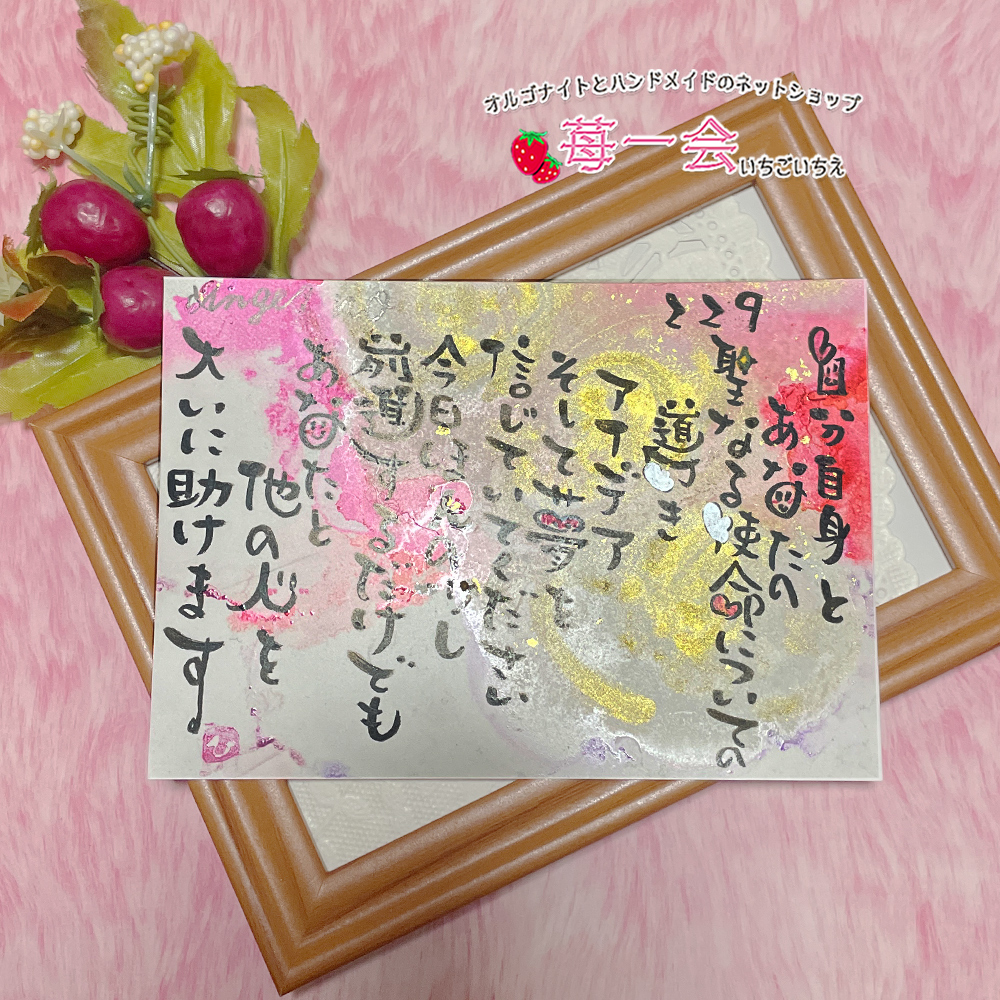 オルゴナイトとハンドメイドのネットショップ
苺一会
いちごいちえ
229
自分自身と
あなたの
聖なる使命についての
導き
アイデア
そして夢を
信じていてください
今日
前進するだけでも
あなたと
他の人を
大いに助けます